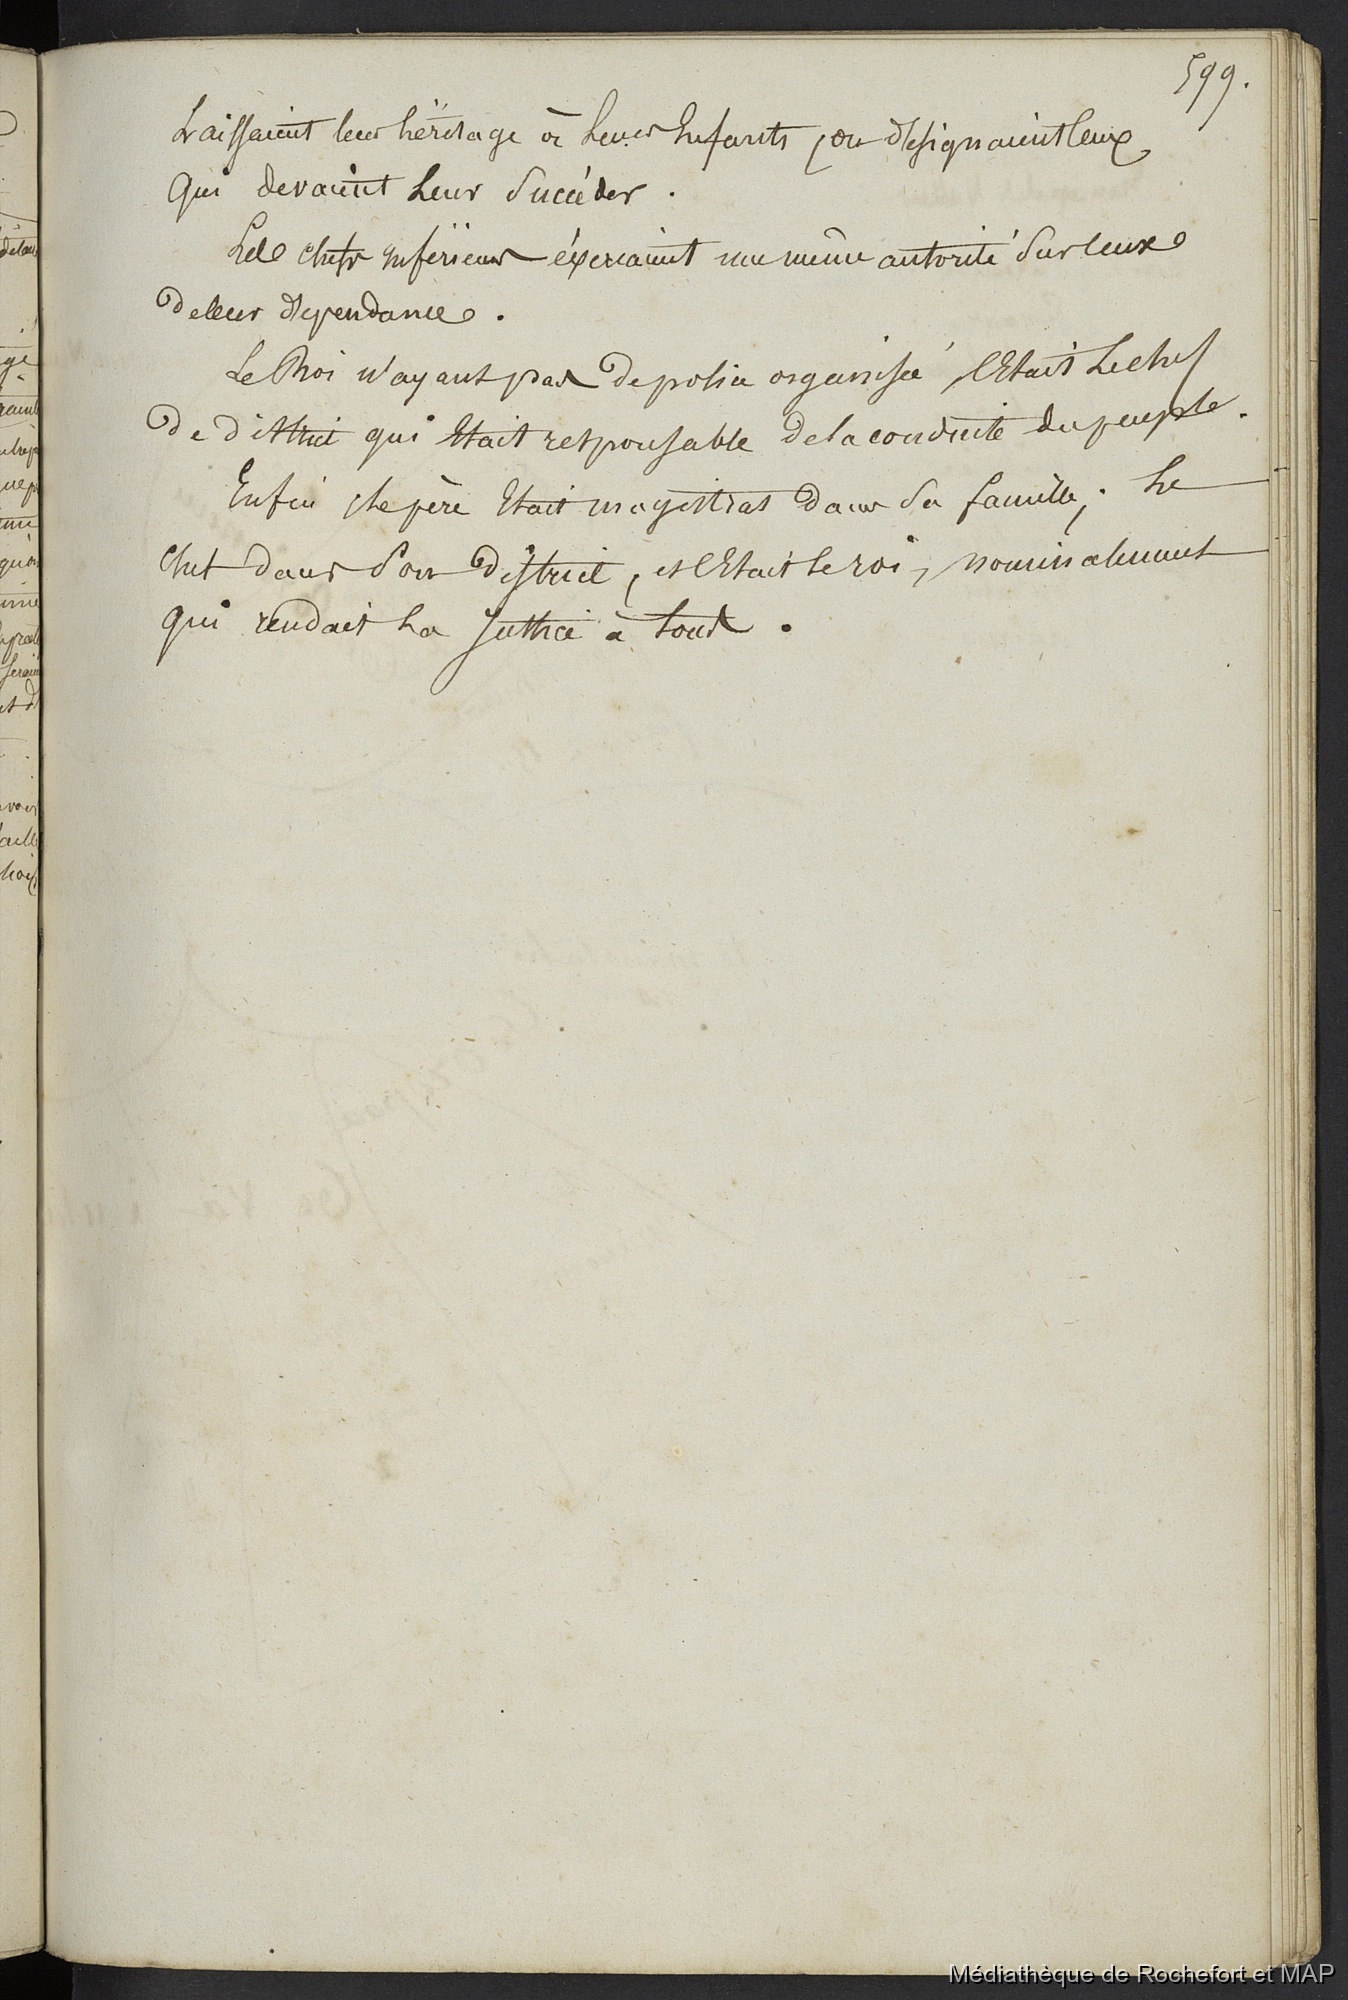 599.
Laissaient leur héritage à Leurs Enfants, ou désignaient Ceux
Qui devaient Leur Succéder.
Les Chefs inférieurs éxerçaient une même autorité Sur Ceux
De leur dépendance.
Le Roi n'ayant pas De police organisée, C'Etait Le chef
De district qui Etait responsable De la conduite du peuple.
Enfin, le père Etait magistrat dans Sa famille, Le
Chef dans Son District, et C'Etait le roi, nominalement
Qui rendait La Justice à tous.
Médiathèque de Rochefort et MAP